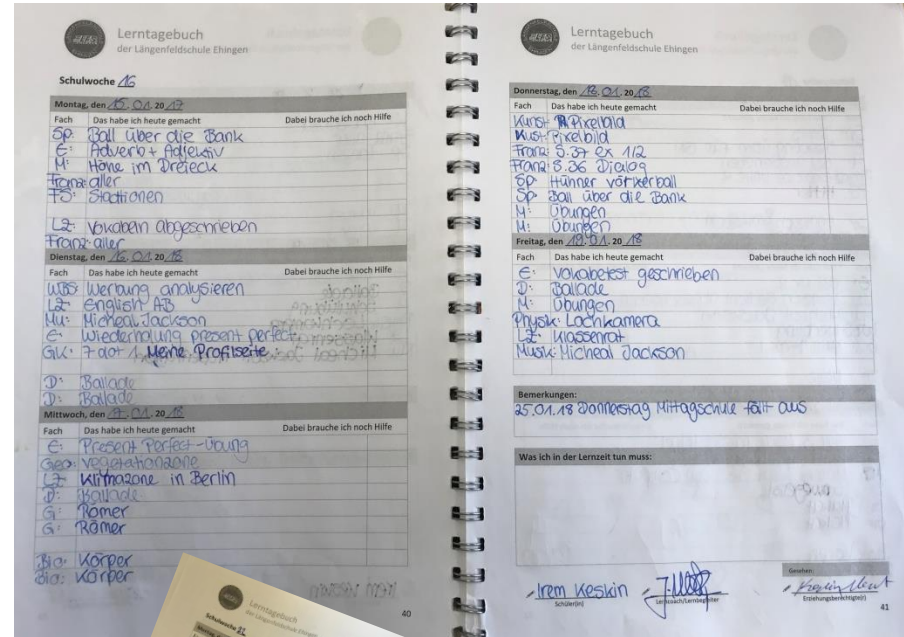 Lerntagebuch
der Längenfeldschule Ehingen
Schulwoche 16
Montag, den 15. 01. 20 17
Fach Das habe ich heute gemacht Dabei brauche ich noch Hilfe
Sp: Ball über die Bank
E: Adverb + Adjektiv
M: Höhe im Dreieck
Franz: aller
FS: Stadtionen
LZ: Vokabeln abgeschrieben
Franz: aller
Dienstag, den 16. 01. 20 18
Fach Das habe ich heute gemacht Dabei brauche ich noch Hilfe
WBS: Werbung analysieren
LZ: English AB
Mu: Micheal Jackson
E: Wiederholung present perfect
GK: Meine Profilseite
D: Ballade
D: Ballade
Mittwoch, den 17. 01. 20 18
Fach Das habe ich heute gemacht Dabei brauche ich noch Hilfe
E: Present Perfect-Übung
Geo: Vegetationzone
LZ: Klimazone in Berlin
D: Ballade
G: Römer
G: Römer
Bio: Körper
Bio: Körper
40
Lerntagebuch
der Längenfeldschule Ehingen
Donnerstag, den 18. 01. 20 18
Fach Das habe ich heute gemacht Dabei brauche ich noch Hilfe
Kunst: Pixelbild
Kust: Pixelbild
Franz: S. 37 ex 1/2
Franz: S. 36 Dialog
Sp: Hühner vörkerball
Sp: Ball über die Bank
M: Übungen
M: Übungen
Freitag, den 19. 01. 20 18
Fach Das habe ich heute gemacht Dabei brauche ich noch Hilfe
E: Vokabetest geschrieben
D: Ballade
M: Übungen
Physik: Lochkamera
LZ: Klassenrat
Musik: Micheal Jackson
Bemerkungen:
25.01.18 Donnerstag Mittagschule fällt aus
Was ich in der Lernzeit tun muss:
Gesehen:
Irem Keskin
Schüler(in) Lerncoach/Lernbegleiter Erziehungsberechtigte(r)
41
Lerntagebuch
der Längenfeldschule Ehingen
Schulwoche 21